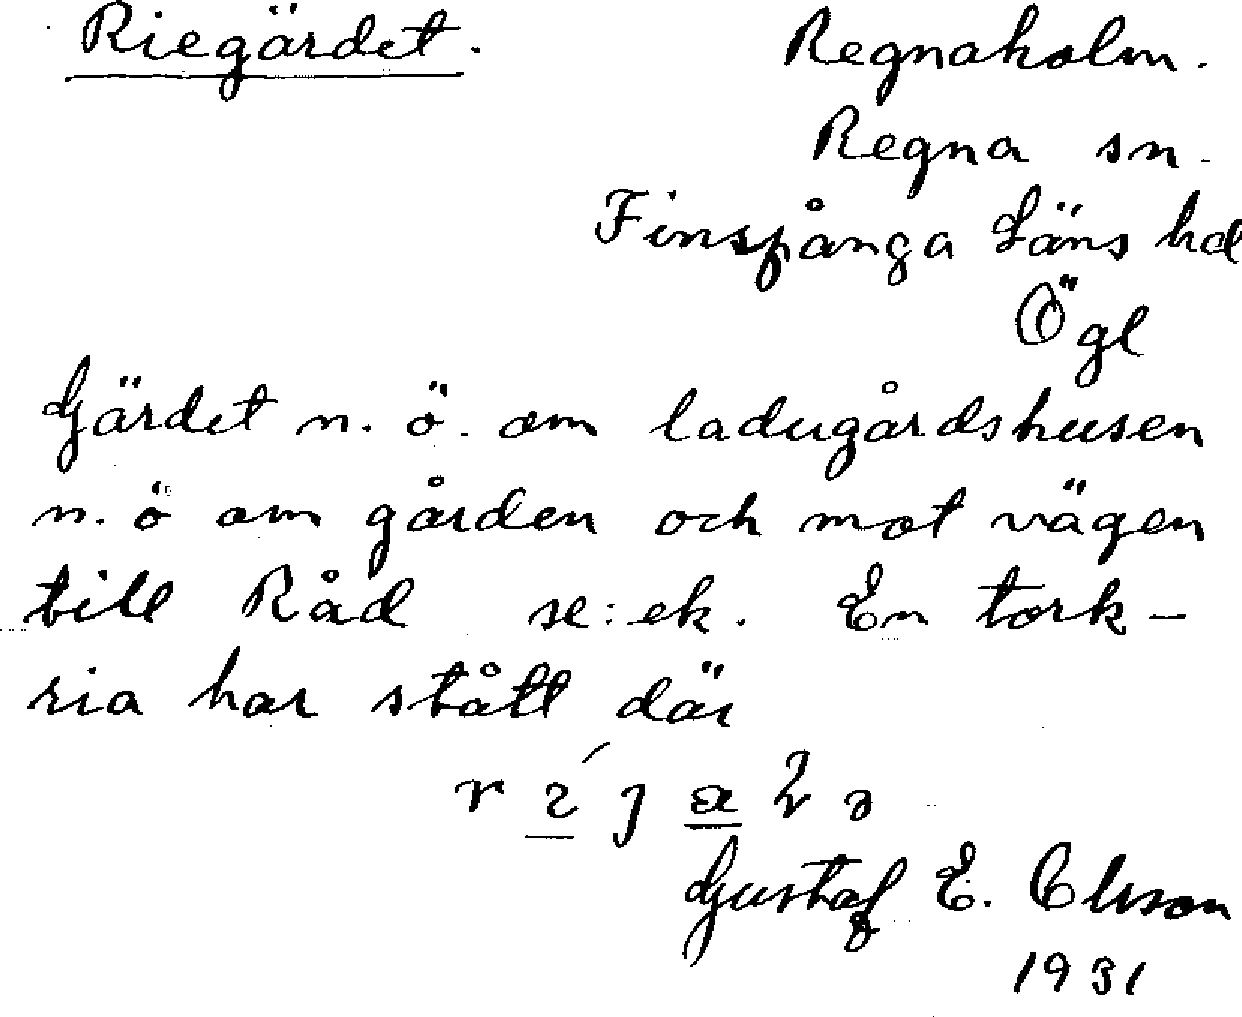 Riegärdet. Regnaholm.
Regna sn.
Finspånga Läns hd
Ögl
Gärdet n. ö. om ladugårdshusen
n. ö om gården och mot vägen
till Råd se: ek. En tork-
ria har stått där
Gustaf E. Olsson
1931